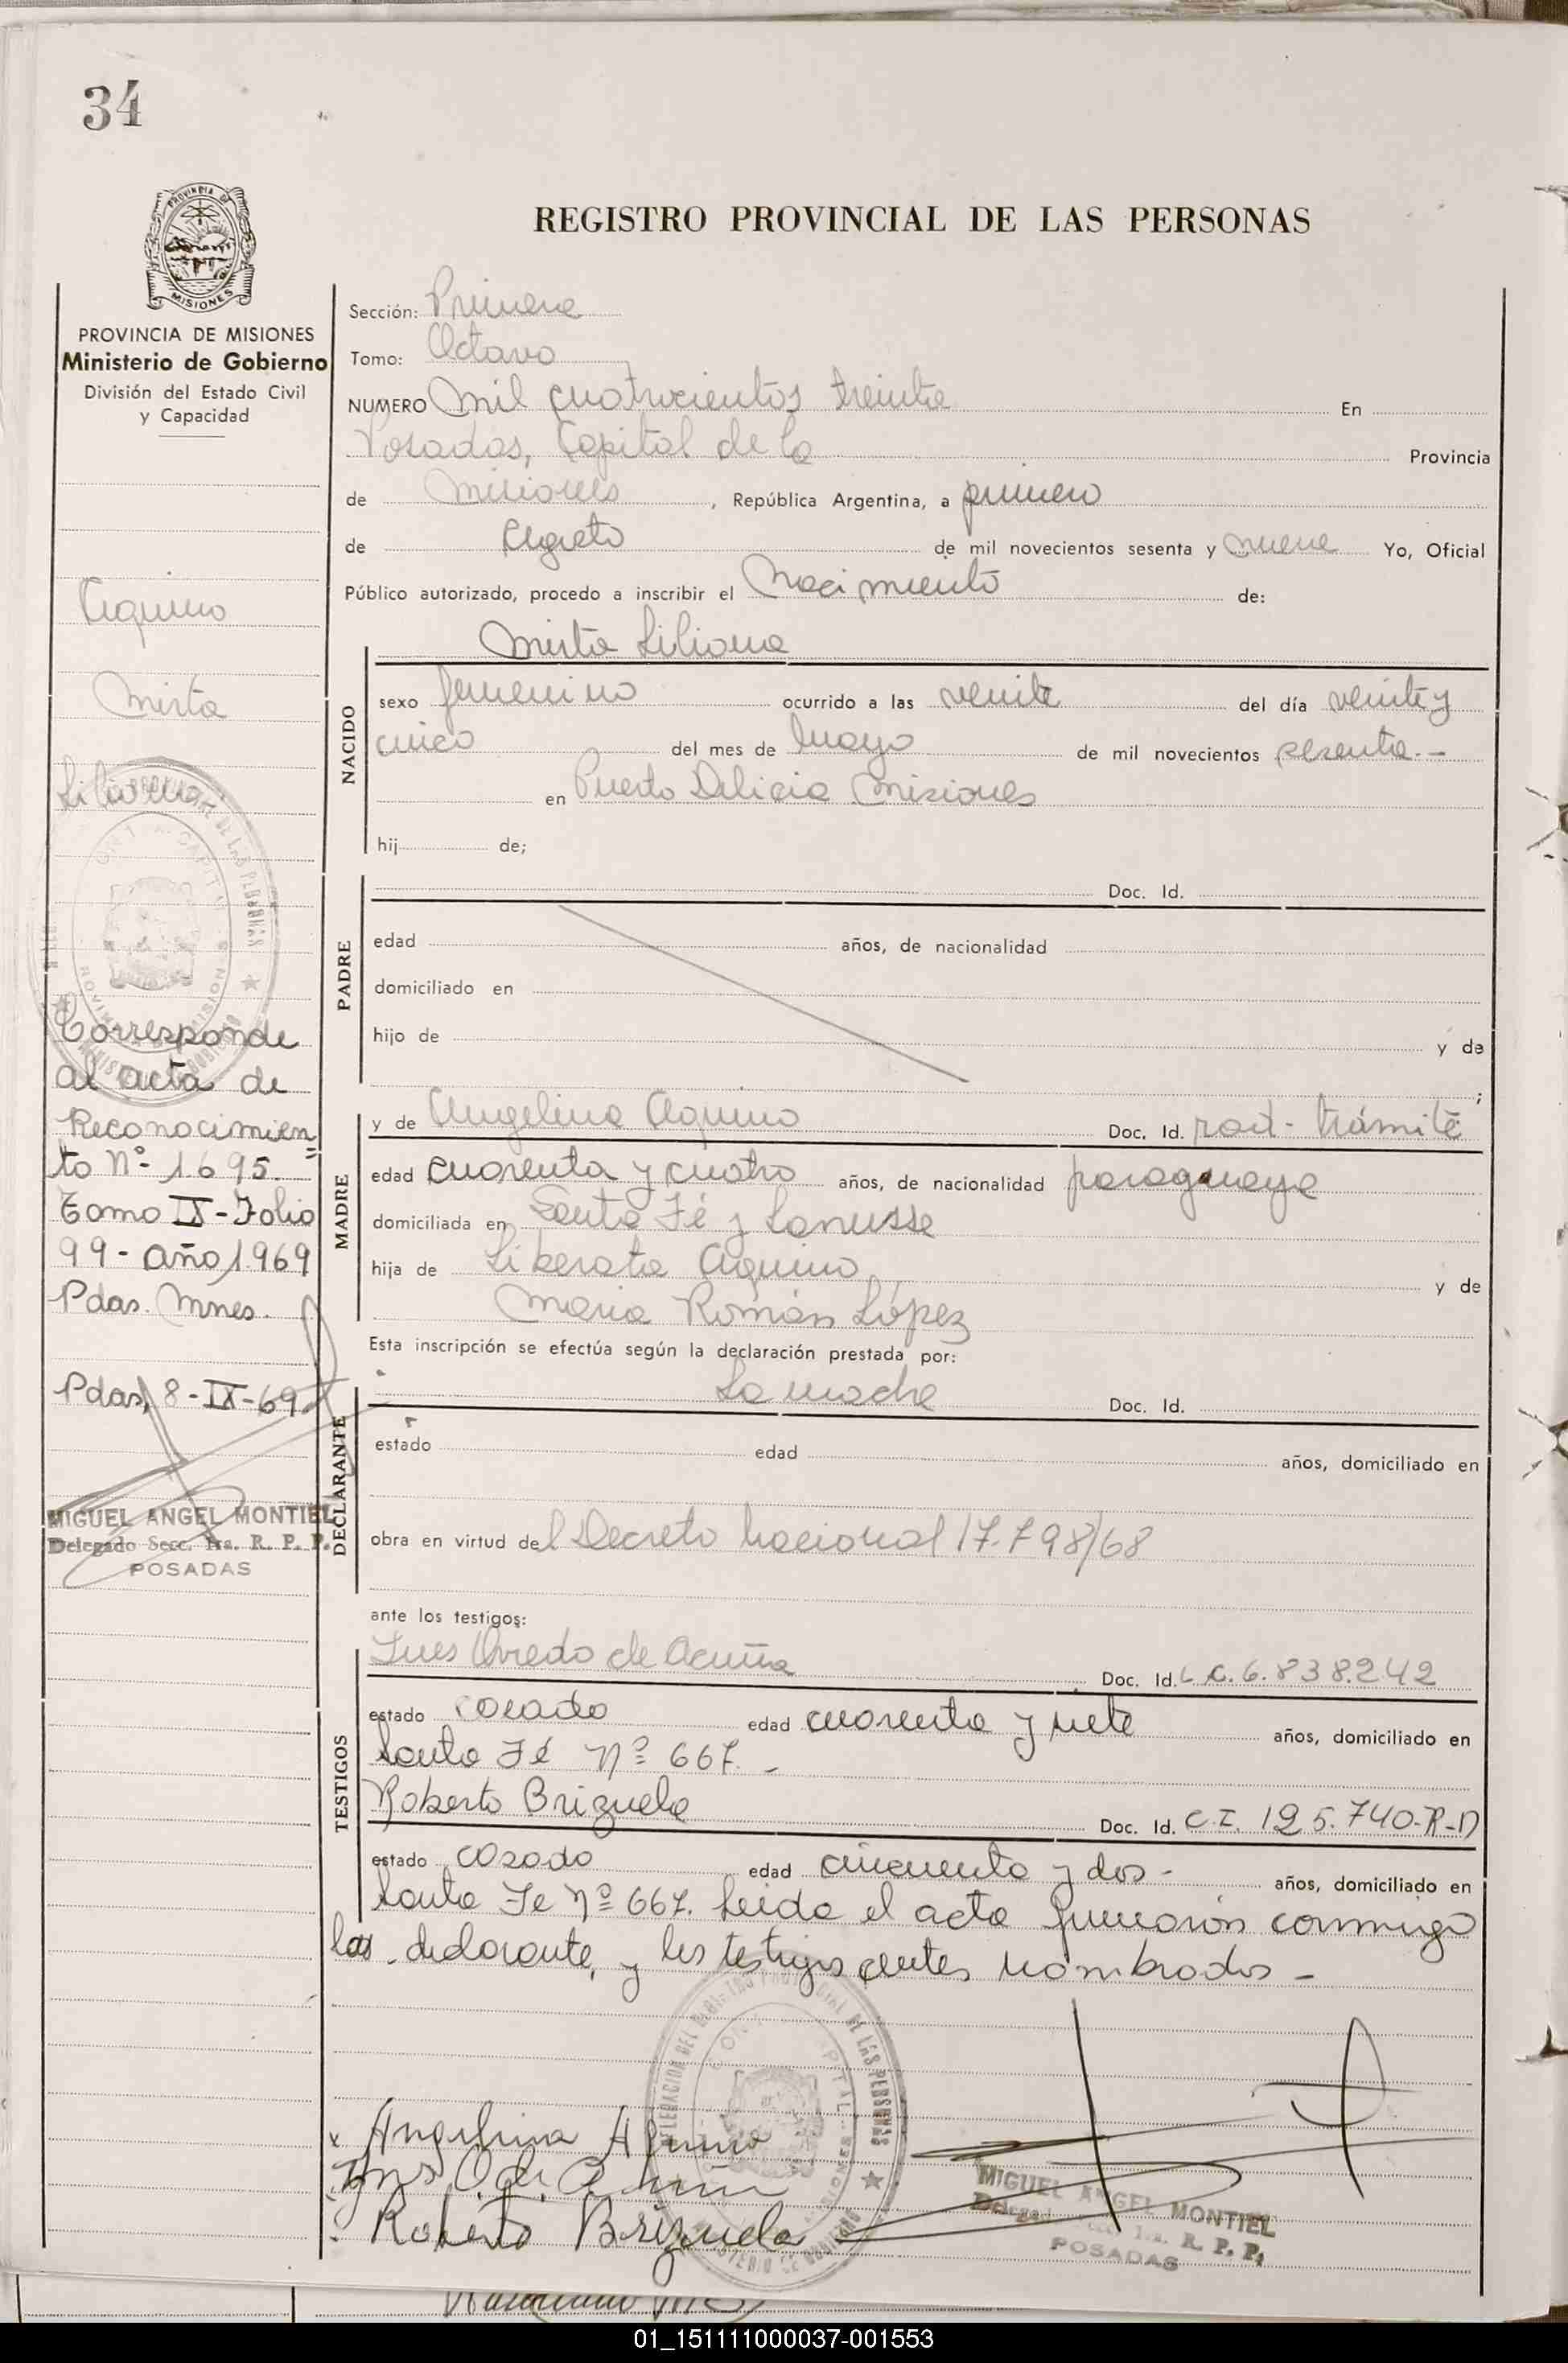 34
PROVINCIA DE
MISIONES
PROVINCIA DE MISIONES
Ministerio de Gobierno
División del Estado Civil
y Capacidad
Aquino
Mirta
Liliana
Corresponde
al acta de
Reconocimien
to Nº 1695.=
Tomo IX-Folio
99- año 1969
Pdas. Mnes.
Pdas, 8-IX-69
MIGUEL ANGEL MONTIEL
Delegado Secc. 1ra. R. P. P.
POSADAS
REGISTRO PROVINCIAL DE LAS PERSONAS
Sección: Primera
Tomo: Octavo
NUMERO Mil cuatrocientos treinta En
Posadas, Capital de la Provincia
de Misiones, República Argentina, a primero
de Agosto de mil novecientos sesenta y nueve Yo, Oficial
Público autorizado, procedo a inscribir el Nacimiento de:
Mirta Liliana
NACIDO
sexo femenino ocurrido a las veinte del día veinte y
cinco del mes de Mayo de mil novecientos sesenta.-
en Puerto Delicia Misiones
hij de;
PADRE
Doc. Id.
edad años, de nacionalidad
domiciliado en
hijo de y de
;
MADRE
y de Angelina Aquino Doc. Id. rad- trámite
edad cuarenta y cuatro años, de nacionalidad paraguaya
domiciliada en Santa Fé y Lanusse
hija de Liberata Aquino y de
Maria Román López
Esta inscripción se efectúa según la declaración prestada por:
DECLARANTE
La madre Doc. Id.
estado edad años, domiciliado en
obra en virtud del Decreto Nacional 17.798/68
ante los testigos:
TESTIGOS
Ines Oviedo de Acuña Doc. Id. L.C. 6.838.242
estado casado edad cuarenta y siete años, domiciliado en
Santa Fé Nº 667.-
Roberto Brizuela Doc. Id. C.I. 125.740-R-D
estado casado edad cincuenta y dos- años, domiciliado en
Santa Fe Nº 667. Leida el acta firmaron conmigo
la declarante, y los testigos antes nombrados-
Angelina Aquino
Ines O. de Acuña
Roberto Brizuela
MIGUEL ANGEL MONTIEL
Delegado Secc. 1ra. R. P. P.
POSADAS
01_151111000037-001553